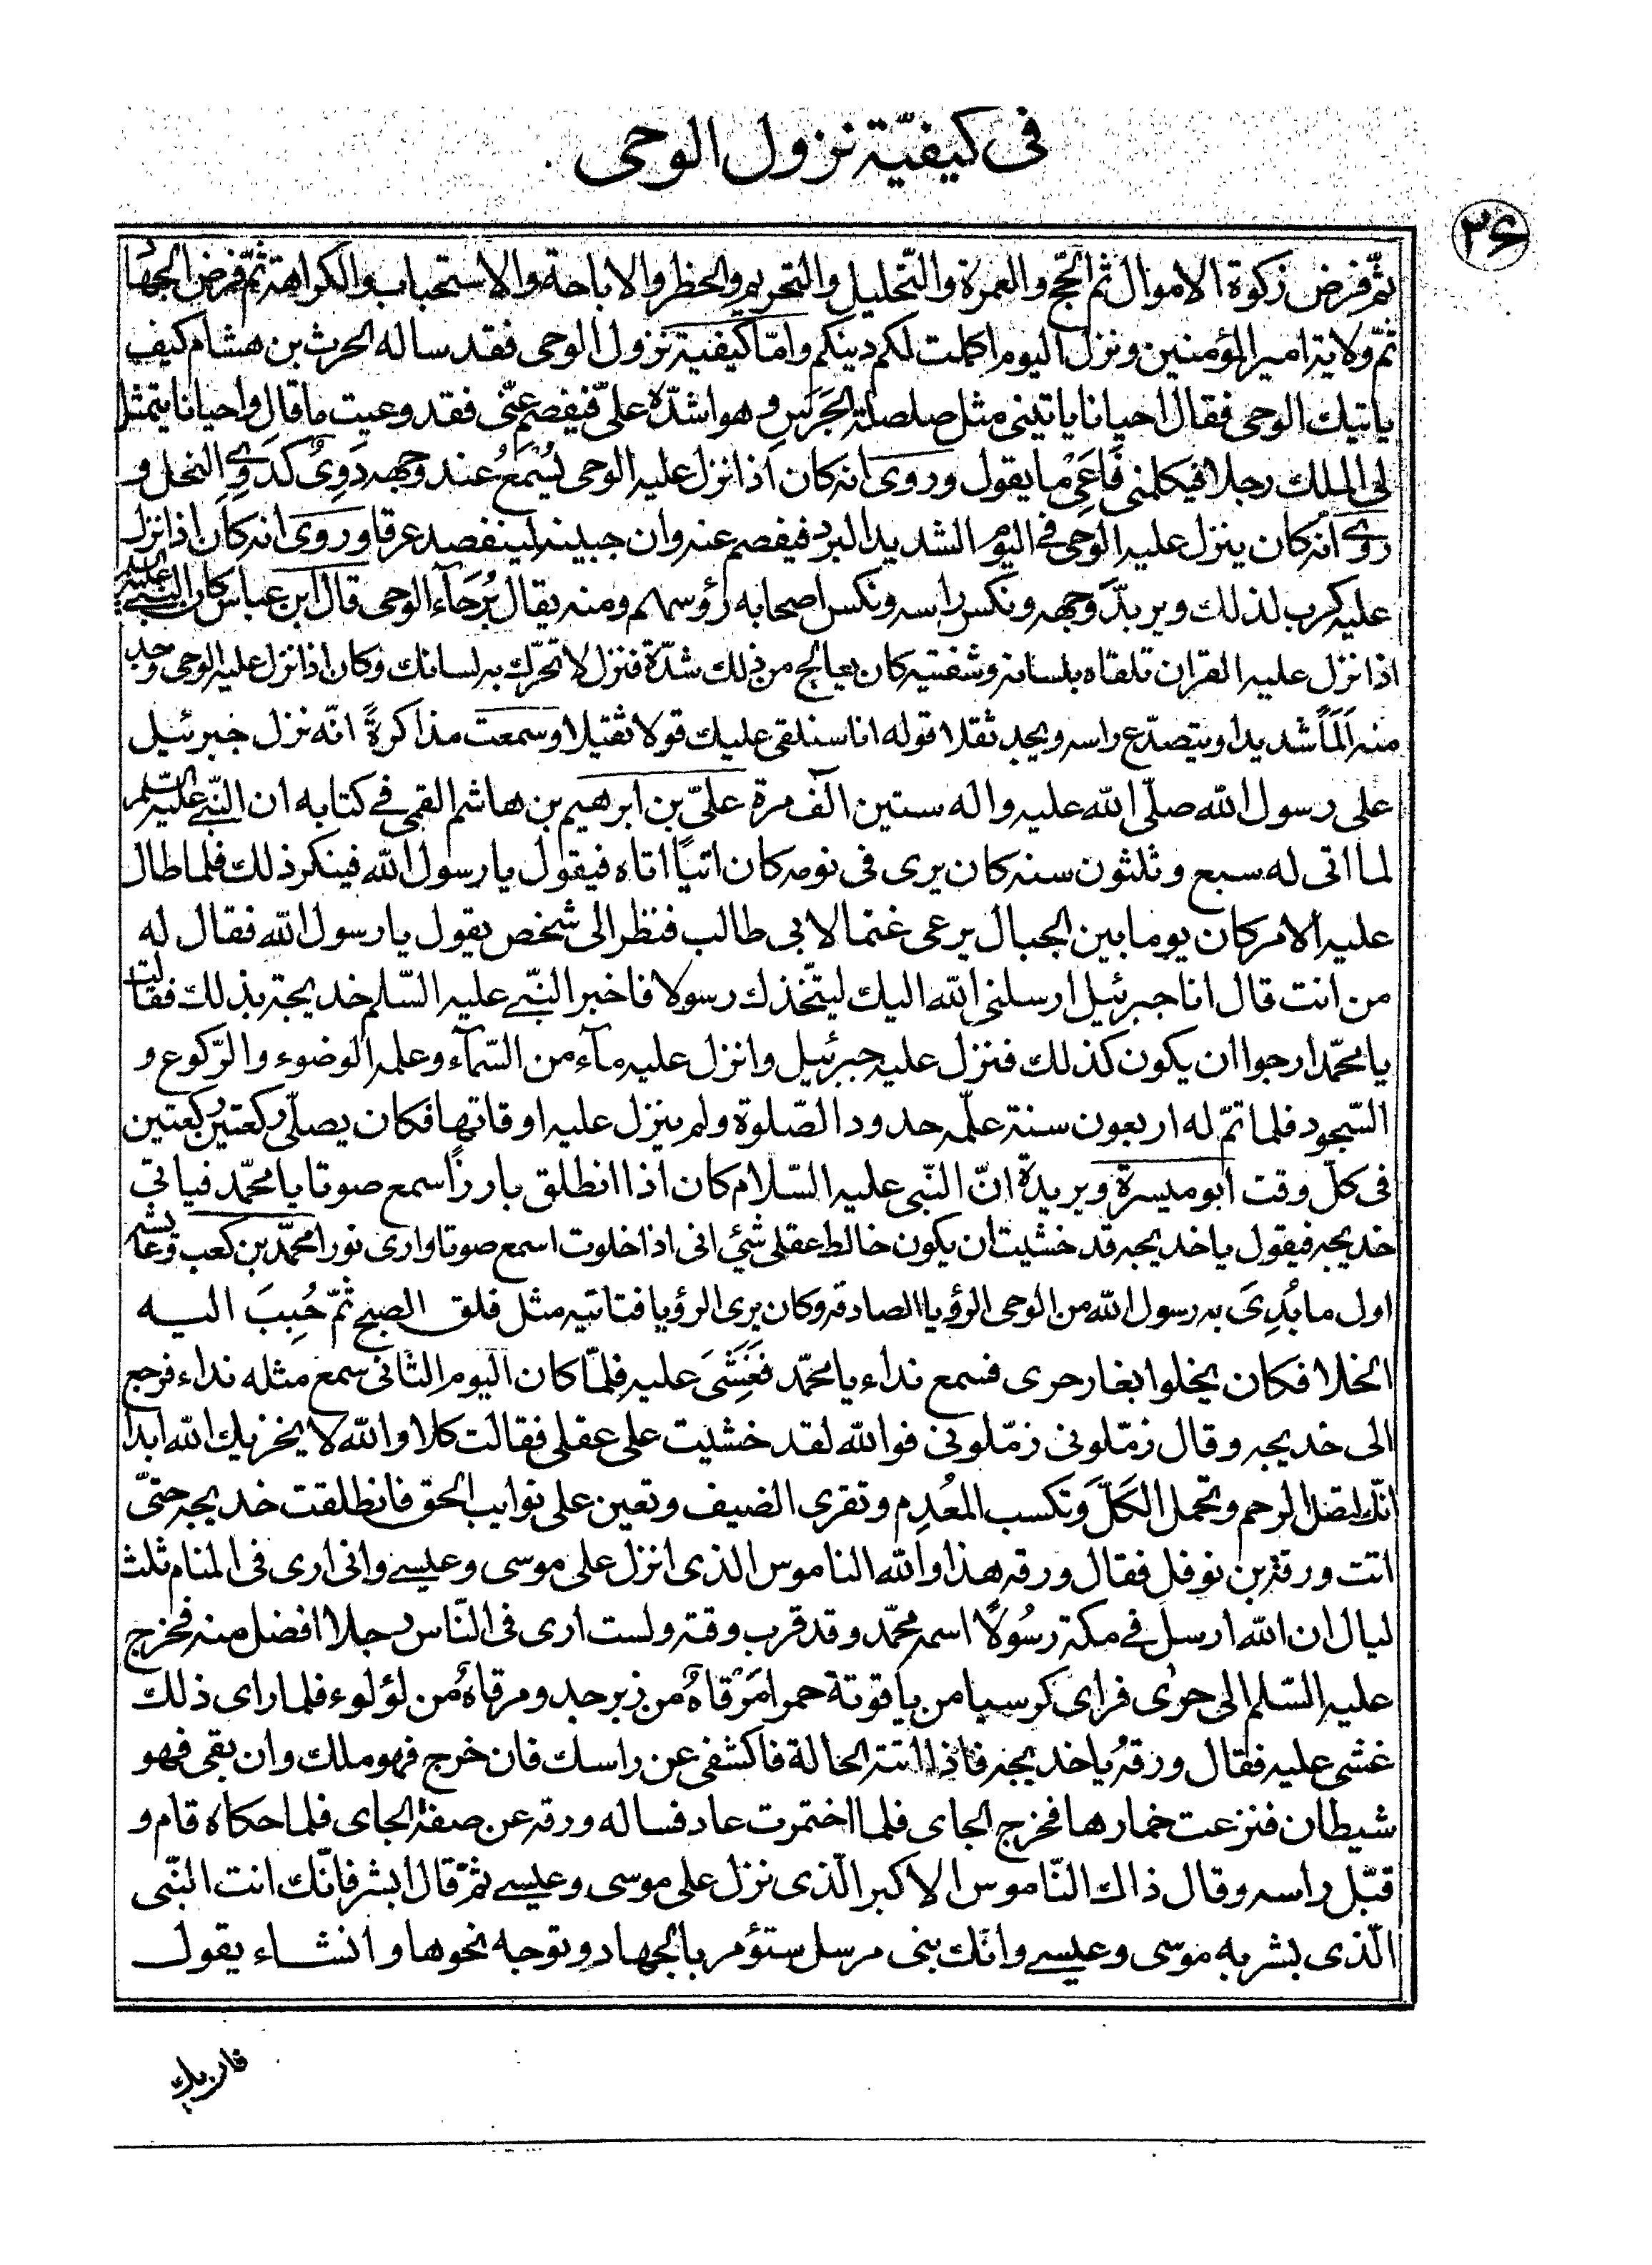 فى كيفيّة نزول الوحى
٣۶
ثمّ فرض زكوة الاموال ثم الحجّ والعمرة والتّحليل والتحريم والحظر والاباحة والاستحباب والكراهة ثمّ فرض الجهاد
ثمّ ولاية امير المؤمنين ونزل اليوم اكملت لكم دينكم وامّا كيفية نزول الوحى فقد ساله الحرث بن هشام كيف
ياتيك الوحى فقال احيانا ياتينى مثل صلصلة الجَرَسِ وهو اشدّه علىّ فيفصم عنّى فقد وعيت ما قال واحيانا يتمثل
لى الملك رجلا فيكلمنى فَاَعى ما يقول وروى انه كان اذا نزل عليه الوحى يُسْمَعُ عند وجهه دَوِىٌّ كَدَوِىّ النحل و
روى انه كان ينزل عليه الوحى فى اليوم الشديد البرد فيفصم عنه وان جبينه لينفصد عرقا وروى انه كان اذا نزل
عليه كرب لذلك ويربدّ وجهه ونكس راسه ونكس اصحابه رؤوسهم ومنه يقال بُرَحَآء الوحى قال ابن عباس كان النبىّ عليه السلم
اذا نزل عليه القران تلقاه بلسانه وشفتيه كان يعالج من ذلك شدّة فنزل لا تحرّك به لسانك وكان اذا نزل عليه الوحى وجد
منه اَلَمًا شديدا ويتصدّع راسه ويجد ثقلا قوله انا سنلقى عليك قولا ثقيلا وسمعت مذاكرةً انّه نزل جبرئيل
على رسول الله صلّى الله عليه واله ستين الف مرة علىّ بن ابرهيم بن هاشم القمى فى كتابه ان النبّى عليه السّلم
لما اتى له سبع وثلثون سنه كان يرى فى نومه كان اتيًا اتاه فيقول يا رسول الله فينكر ذلك فلما طال
عليه الامر كان يوما بين الجبال يرعى غنما لابى طالب فنظر الى شخص يقول يا رسول الله فقال له
من انت قال انا جبرئيل ارسلنى الله اليك ليتّخذك رسولا فاخبر النبّى عليه السّلم خديجة بذلك فقالت
يا محمّد ارجوا ان يكون كذلك فنزل عليه جبرئيل وانزل عليه مآء من السّمآء وعلمه الوضوء والرّكوع و
السّجود فلما تمّ له اربعون سنة علّمه حدود الصّلوة ولم ينزل عليه اوقاتها فكان يصلّى ركعتين ركعتين
فى كلّ وقت أبو ميسرة وبريدة انّ النّبى عليه السّلام كان اذا انطلق بارزًا سمع صوتا يا محمّد فياتى
خديجه فيقول يا خديجه قد خشيت ان يكون خالط عقلى شئ انى اذا خلوت اسمع صوتا وارى نورا محمّد بن كعب وعايشه
اول ما بُدِىَ به رسول الله من الوحى الرؤيا الصادقه وكان يرى الرؤيا فتاتيه مثل فلق الصبح ثمّ حُبِبَ اليه
الخلا فكان يخلوا بغار حرى فسمع نداء يا محمّد فَغَشِىَ عليه فلمّا كان اليوم الثّانى سمع مثله نداء فرجع
الى خديجه وقال زمّلونى زمّلونى فوالله لقد خشيت على عقلى فقالت كلا والله لا يخزيك الله ابدا
انّك لتصل الرحم وتحمل الكَلّ وتكسب المُعْدِم وتقرى الضيف وتعين على نوايب الحق فانطلقت خديجه حتىّ
اتت ورقة بن نوفل فقال ورقه هذا والله الناموس الذى انزل على موسى وعيسى وانى ارى فى المنام ثلث
ليال ان الله ارسل فى مكة رسُولًا اسمه محمّد وقد قرب وقته ولست ارى فى النّاس رجلا افضل منه فخرج
عليه السّلم الى حرى فراى كرسيا من ياقوتة حمرا مَرْقاةٌ من زبرجد ومرقاةٌ من لؤلوء فلما راى ذلك
غشى عليه فقال ورقهُ يا خديجه فاذا اتته الحالة فاكشفى عن راسك فان خرج فهو ملك وان بقى فهو
شيطان فنزعت خمارها فخرج الجاى فلما اختمرت عاد فساله ورقه عن صفة الجاى فلما حكاه قام و
قبّل راسه وقال ذاك النّاموس الاكبر الّذى نزل على موسى وعيسى ثمّ قال ابشر فانّك انت النّبى
الّذى بشر به موسى وعيسى وانّك نبى مرسل ستؤمر بالجهاد وتوجه نحوها وانشاء يقول
فان يك